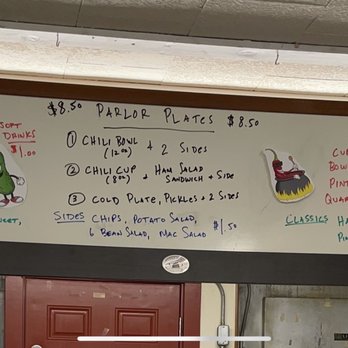 $8.50 PARLOR PLATES $8.50
SOFT
DRINKS
$1.00
① CHILI BOWL + 2 SIDES
(12oz)
② CHILI CUP + HAM SALAD
(8oz) SANDWICH + SIDE
③ COLD PLATE, PICKLES + 2 SIDES
SIDES CHIPS, POTATO SALAD,
6 BEAN SALAD, MAC SALAD $1.50
CUP
BOW
PINT
QUAR
CLASSICS HA